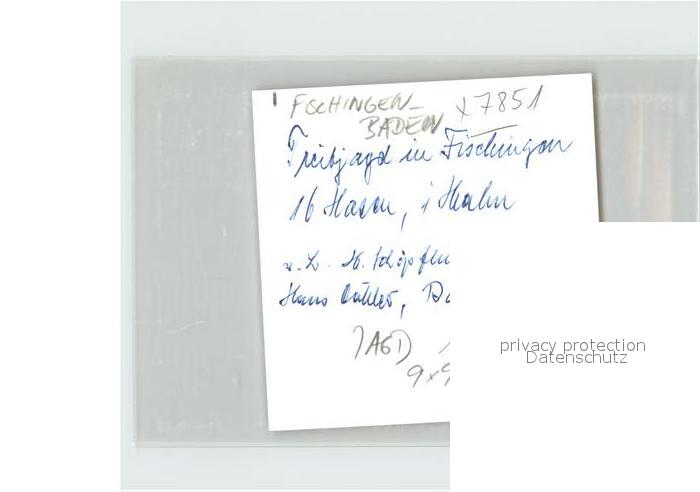 FISCHINGEN-
BADEN x7851
Treibjagd in Fischingen
16 Hasen, 1 Hahn
v. L. H. Schöpflin
Hans
JAGD
privacy protection
Datenschutz